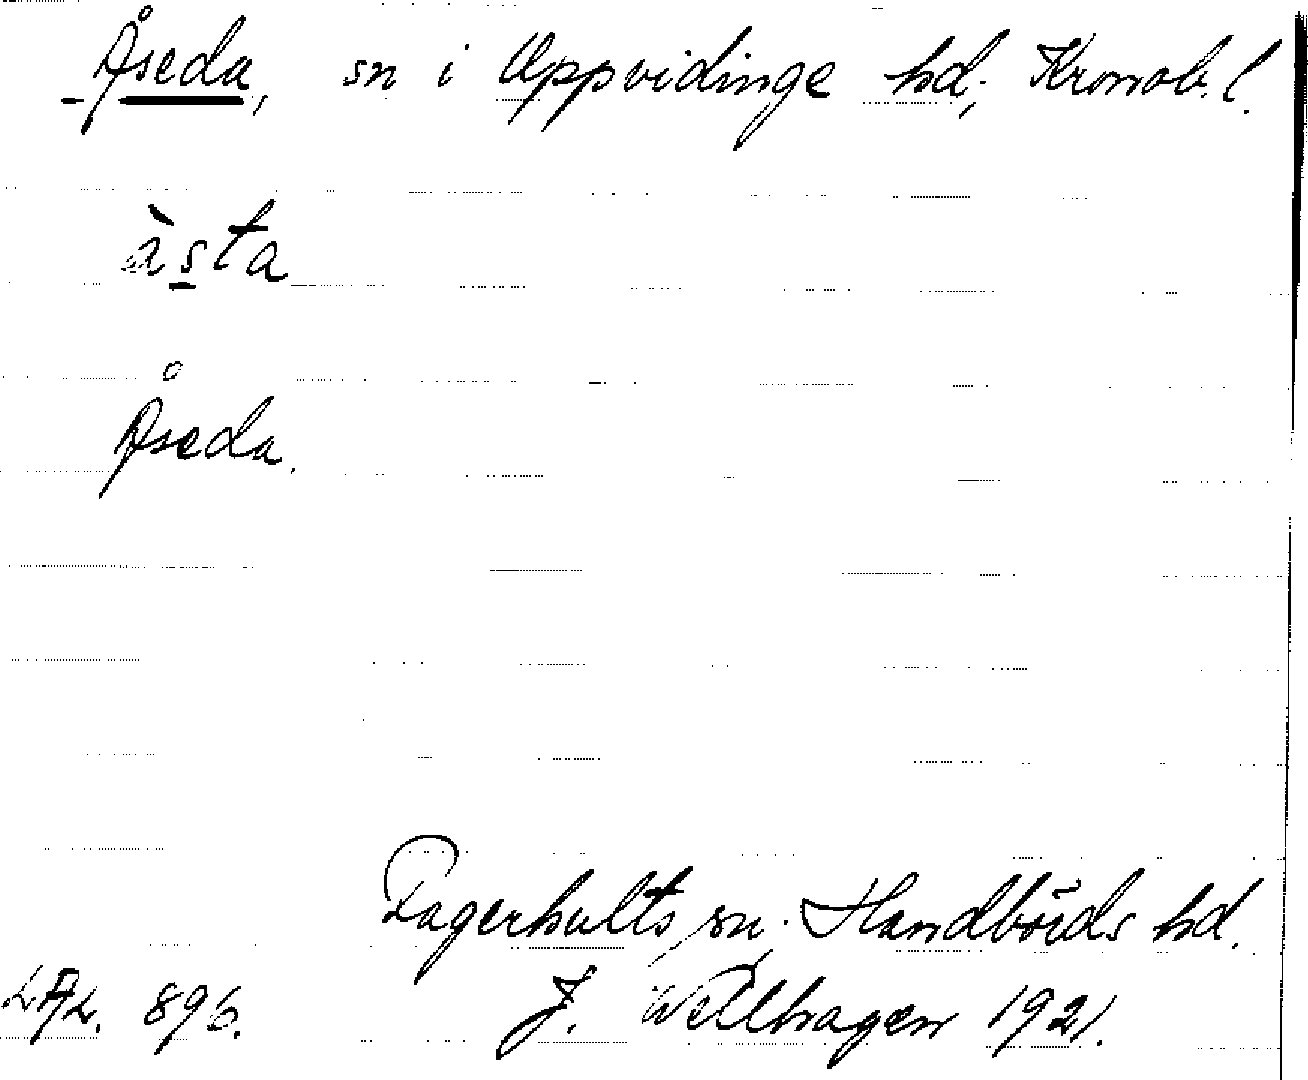 Åseda, sn i Uppvidinge hd, Kronob. l.
àsta
Åseda.
Fagerhults sn. Handbörds hd.
LAL. 896. J. Wellhagen 1921.